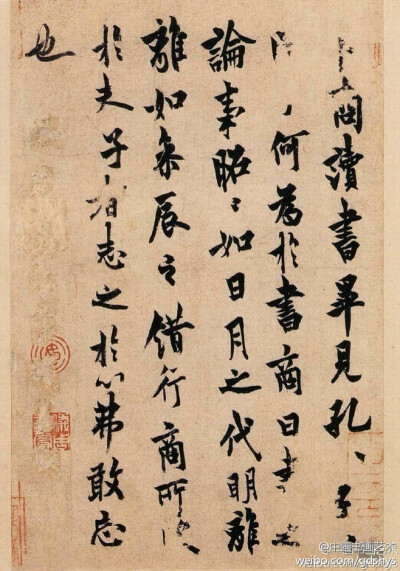 卜商讀書畢見孔〻子〻
何為於書商曰書之
論事昭〻如日月之代明離
離如參辰之錯行商所
於夫子者志之於心弗敢忘
也
weibo.com/gdshys